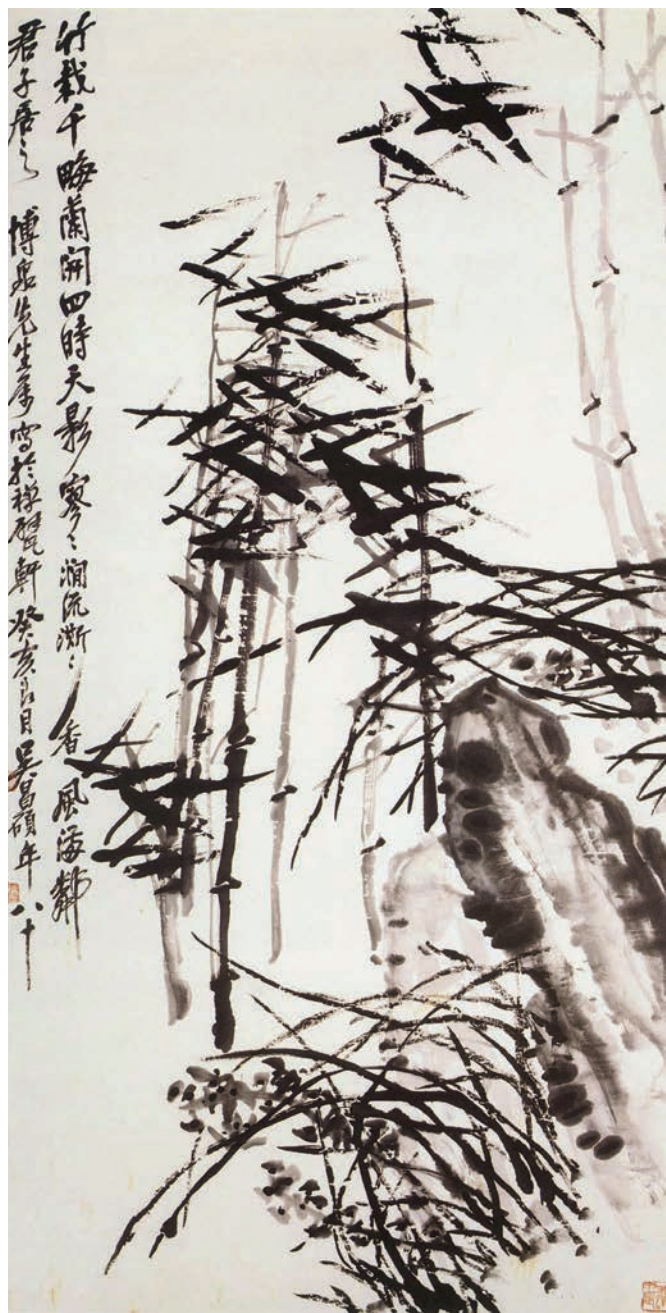 竹栽千畮蘭開四時天影寥〻澗流澌〻香風海鄰
君子居之 博泉先生屬寫於禪甓軒癸亥良月吳昌碩年八十